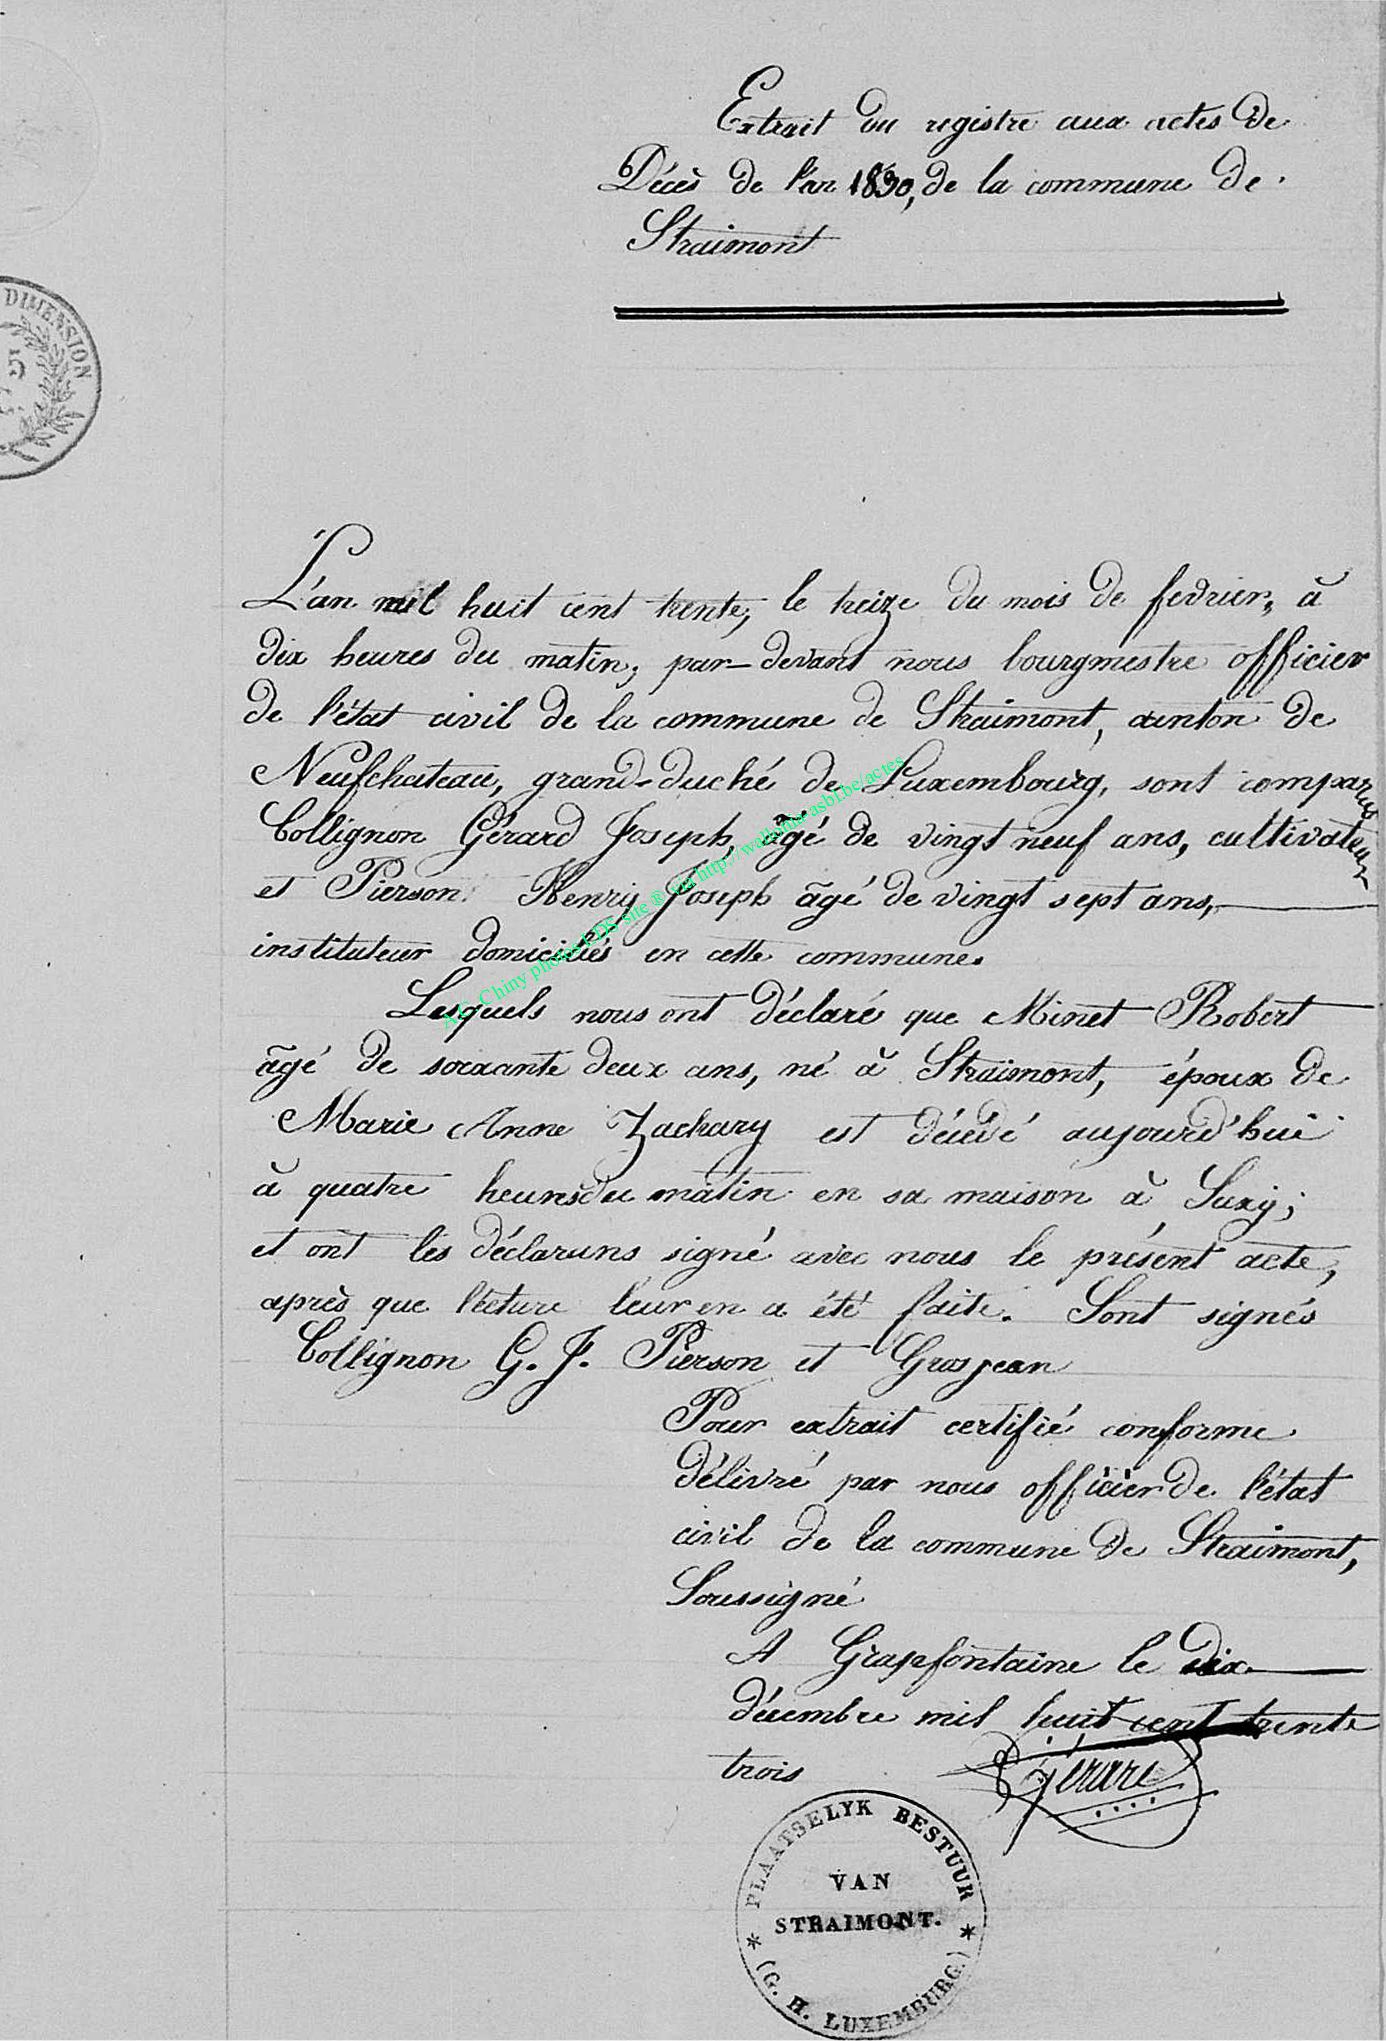 Extrait du registre aux actes de
Décès de l'an 1830, de la commune de
Straimont
DIMENSION
5
L'an mil huit cent trente, le treize du mois de fevrier, à
dix heures du matin, par-devant nous bourgmestre officier
de l'état civil de la commune de Straimont, canton de
Neufchateau, grand-duché de Luxembourg, sont comparus
Collignon Gérard Joseph, âgé de vingt neuf ans, cultivateur
et Pierson Henry Joseph âgé de vingt sept ans,
instituteur domiciliés en cette commune.
Lesquels nous ont déclaré que Minet Robert
âgé de soixante deux ans, né à Straimont, époux de
Marie Anne Zachary est décédé aujourd'hui
à quatre heures du matin en sa maison à Suxy;
et ont les déclarans signé avec nous le présent acte,
après que lecture leur en a été faite. Sont signés
Collignon G. J. Pierson et Grosjean
Pour extrait certifié conforme
délivré par nous officier de l'état
civil de la commune de Straimont,
Soussigné
A Grapfontaine le dix
décembre mil huit cent trente
trois Gérard
PLAATSELYK BESTUUR
VAN
STRAIMONT.
(G. H. LUXEMBURG.)